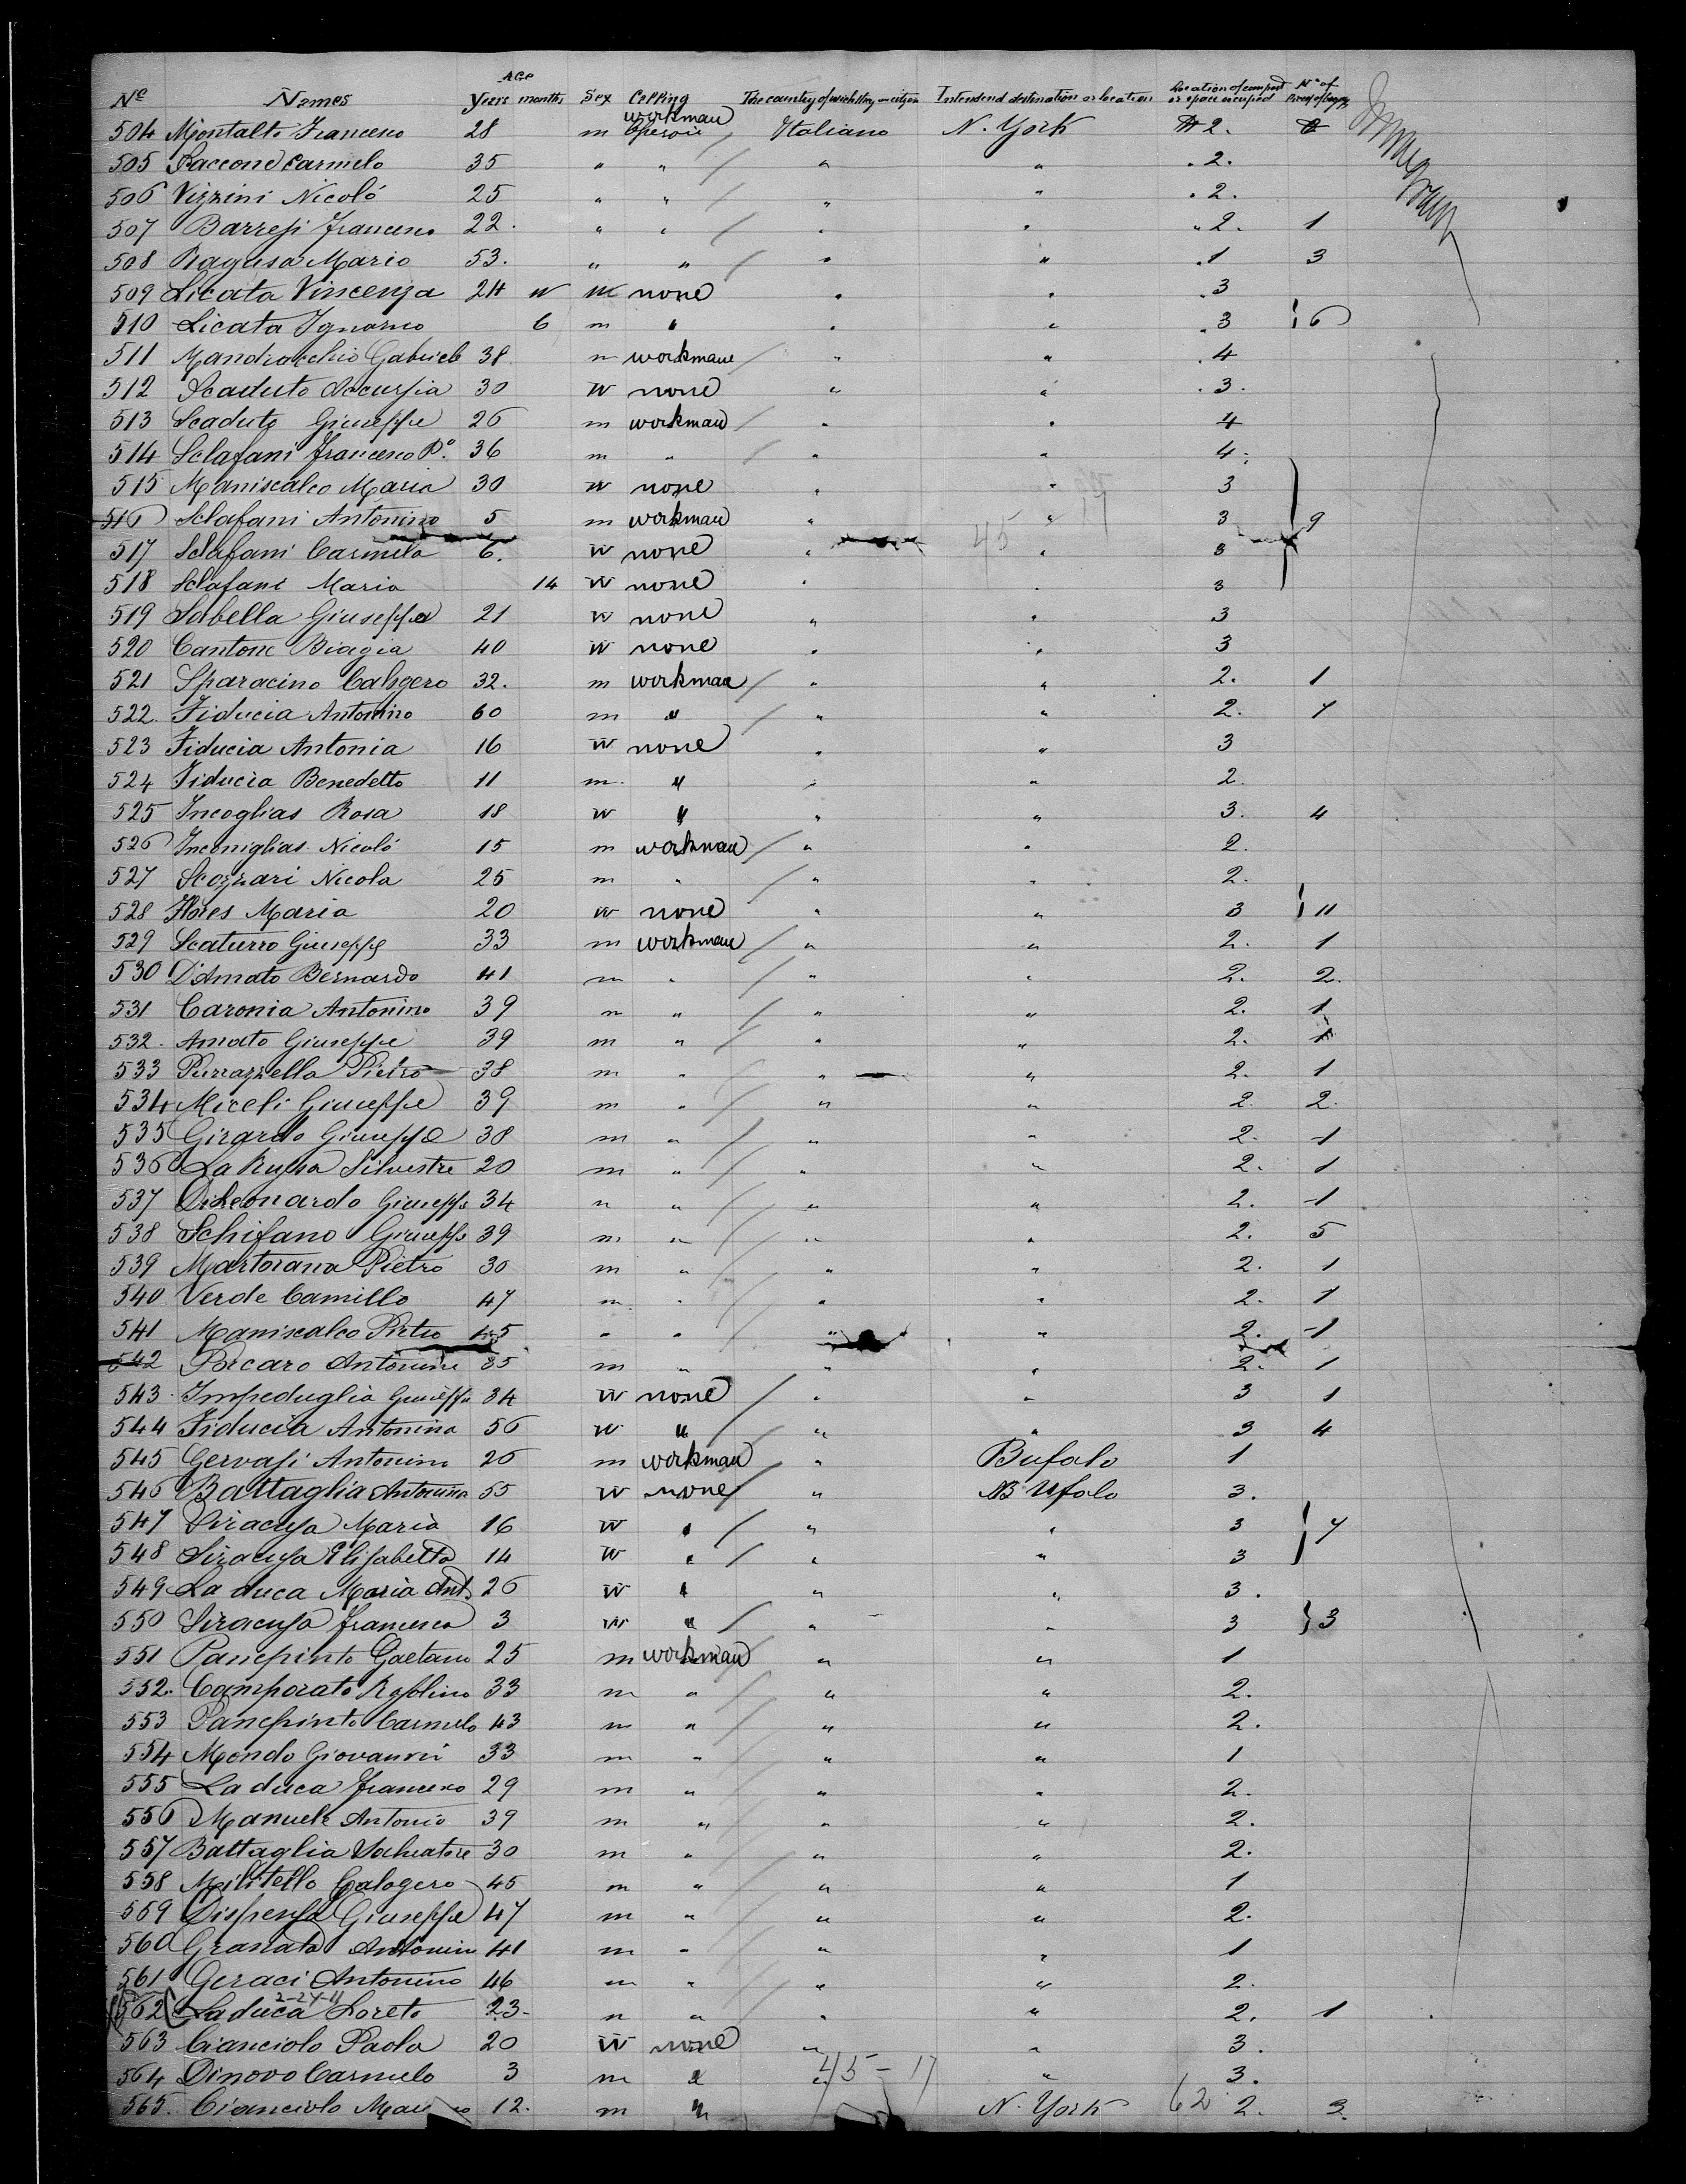 AGe
Nº Names Years months Sex Calling The country of which they are citizens Intendend destination or location Location of compart or space occupied Nº of Pieces of baggage
workman
504 Montalto Francesco 28 m Italiano N. York 2.
505 Saccone Carmelo 35 " " / " " 2.
506 Vizzini Nicoló 25 " " / " " 2.
507 Barresi Francesco 22. " " / " " 2. 1
508 Ragusa Mario 53. " " / " " 1 3
509 Licata Vincenza 24 w none " " 3
510 Licata Ignazio 6 m " " " 3 } 6
511 Mandracchio Gabriele 38 m workman / " " 4
512 Scaduto Accursia 30 w none " " 3.
513 Scaduto Giuseppe 26 m workman / " " 4
514 Sclafani Francesco Pº. 36 m " / " " 4.
515 Maniscalco Maria 30 w none " " 3
516 Sclafani Antonino 5 m workman " " 3 } 9
517 Sclafani Carmela 6. w none " 45 " 3
518 Sclafani Maria 14 w none " " 3
519 Sabella Giuseppa 21 w none " " 3
520 Cantone Biagia 40 w none " " 3
521 Sparacino Calogero 32. m workman / " " 2. 1
522. Fiducia Antonino 60 m " / " " 2. 1
523 Fiducia Antonia 16 w none " " 3
524 Fiducia Benedetto 11 m. " " " 2.
525 Incoglias Rosa 18 w " " " 3. 4
526 Inconiglias Nicoló 15 m workman / " " 2.
527 Scozzari Nicola 25 m " / " " 2.
528 Flores Maria 20 w none " " 3 } 11
529 Scaturro Giuseppe 33 m workman / " " 2. 1
530 D'Amato Bernardo 41 m " / " " 2. 2.
531 Caronia Antonino 39 m " / " " 2. 1
532. Amato Giuseppe 39 m " / " " 2. 1
533 Purrazzella Pietro 38 m " " " 2. 1
534 Miceli Giuseppe 39 m " / " " 2. 2.
535 Girardo Giuseppe 38 m " / " " 2. 1
536 La Russa Silvestre 20 m " / " " 2. 1
537 DiLeonardo Giuseppe 34 m " / " " 2. 1
538 Schifano Giuseppe 39 m " / " " 2. 5
539 Martorana Pietro 30 m " / " " 2. 1
540 Verde Camillo 47 m " / " " 2. 1
541 Maniscalco Pietro 45 " " / " " 2. 1
542 Porcaro Antonino 35 m " " " 2. 1
543. Impeduglia Giuseppa 34 w none / " " 3 1
544 Fiducia Antonina 56 w " / " " 3 4
545 Gervasi Antonino 26 m workman " Bufalo 1
546 Battaglia Antonina 55 w none / " Bufolo 3.
547 Siracusa Maria 16 w " / " " 3 } 7
548 Siracusa Elisabetta 14 w " / " " 3
549 La duca Maria Ant. 26 w " " " 3.
550 Siracusa Francesca 3 w " / " " 3 } 3
551 Panepinto Gaetano 25 m workman / " " 1
552. Camporato Rosolino 33 m " / " " 2.
553 Panepinto Carmelo 43 m " / " " 2.
554 Mondo Giovanni 33 m " / " " 1
555 La duca Francesco 29 m " / " " 2.
556 Manuele Antonio 39 m " / " " 2.
557 Battaglia Salvatore 30 m " / " " 2.
558 Militello Calogero 45 m " / " " 1
559 Dispensa Giuseppe 47 m " / " " 2.
560 Granata Antonino 41 m " / " " 1
561 Geraci Antonino 46 m " / " " 2.
2-24-11
562 La duca Loreto 23. m " / " " 2. 1
563 Cianciolo Paola 20 w none " " 3.
564 Dinovo Carmelo 3 m " " 45-17 " 3.
565. Cianciolo 12. m " N. York 62 2. 3.